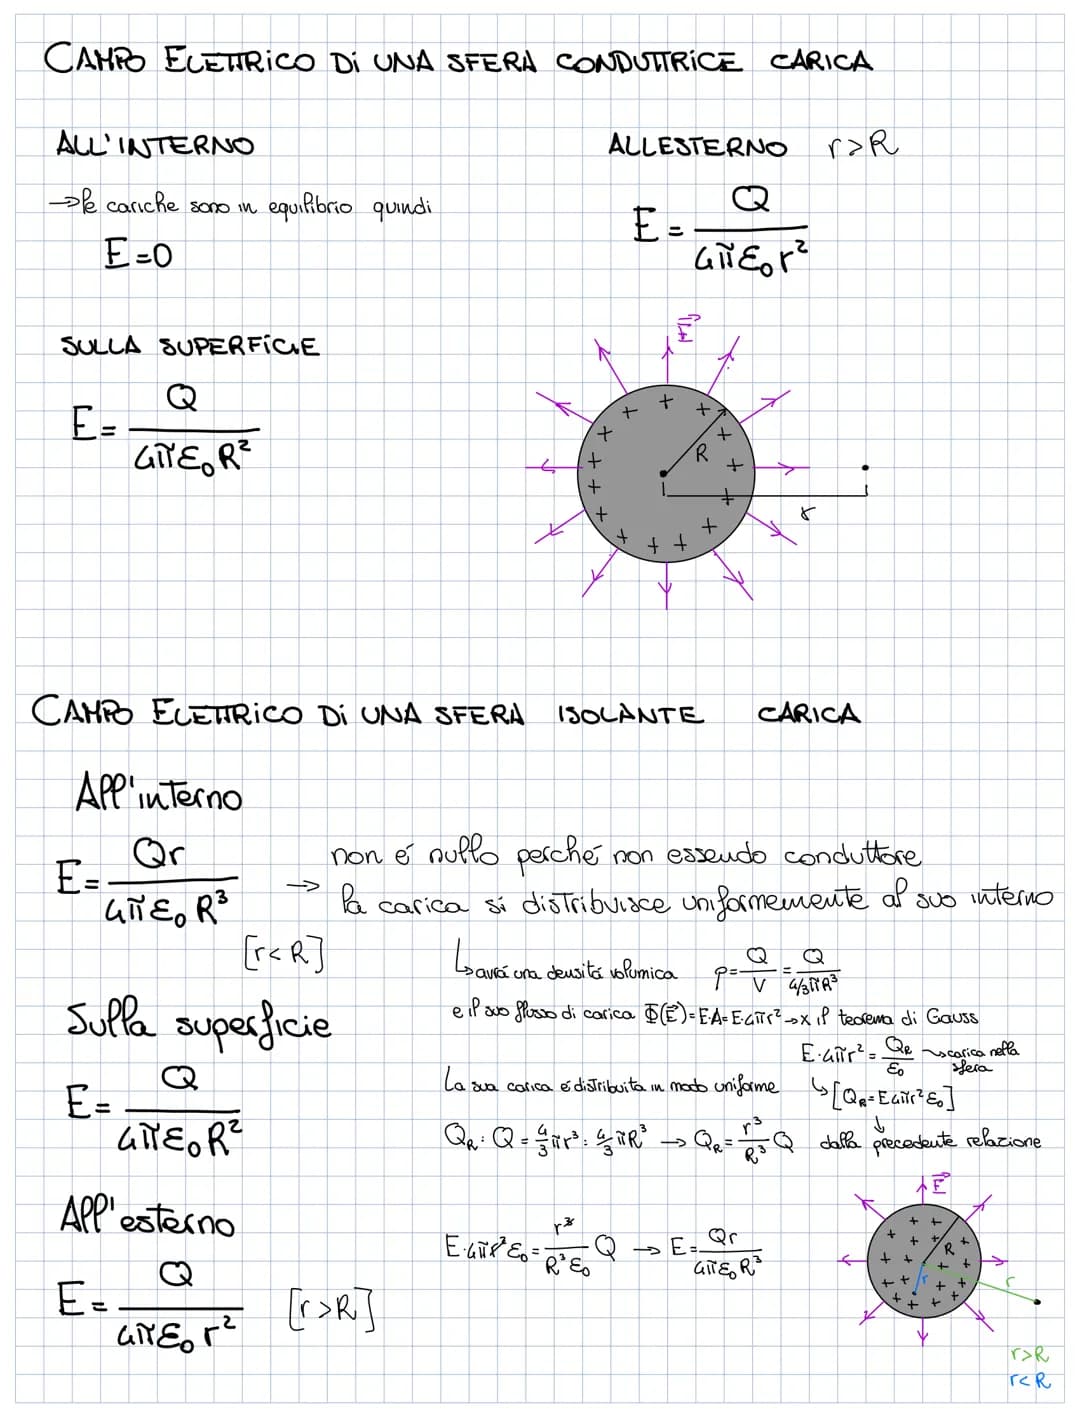 CAMPO ELETTRICO Di UNA SFERA CONDUTTRICE CARICA
ALL'INTERNO
→le cariche sono in equilibrio quindi
E=0
ALLESTERNO r>R
E = Q / 4πε₀r²
SULLA SUPERFICIE
E = Q / 4πε₀R²
E⃗
+ + + + + + + + + + + + + + + +
R
r
CAMPO ELETTRICO Di UNA SFERA ISOLANTE CARICA
All'interno
E = Qr / 4πε₀R³
[r<R]
→ non é nullo perché non essendo conduttore
la carica si distribuisce uniformemente al suo interno
↳avrá una densitá volumica ρ = Q/V = Q / 4/3πR³
e il suo flusso di carica Φ(E⃗)=E·A=E·4πr²→x il teorema di Gauss
E·4πr² = QR/ε₀ → carica nella sfera
↳[QR=E4πr²ε₀]
La sua carica é distribuita in modo uniforme
QR:Q = 4/3πr³ : 4/3πR³ → QR = r³/R³ Q
↓
dalla precedente relazione
E·4πr²ε₀ = r³/R³ε₀ Q → E = Qr / 4πε₀R³
Sulla superficie
E = Q / 4πε₀R²
All'esterno
E = Q / 4πε₀r² [r>R]
E⃗
R
r
r
r>R
r<R